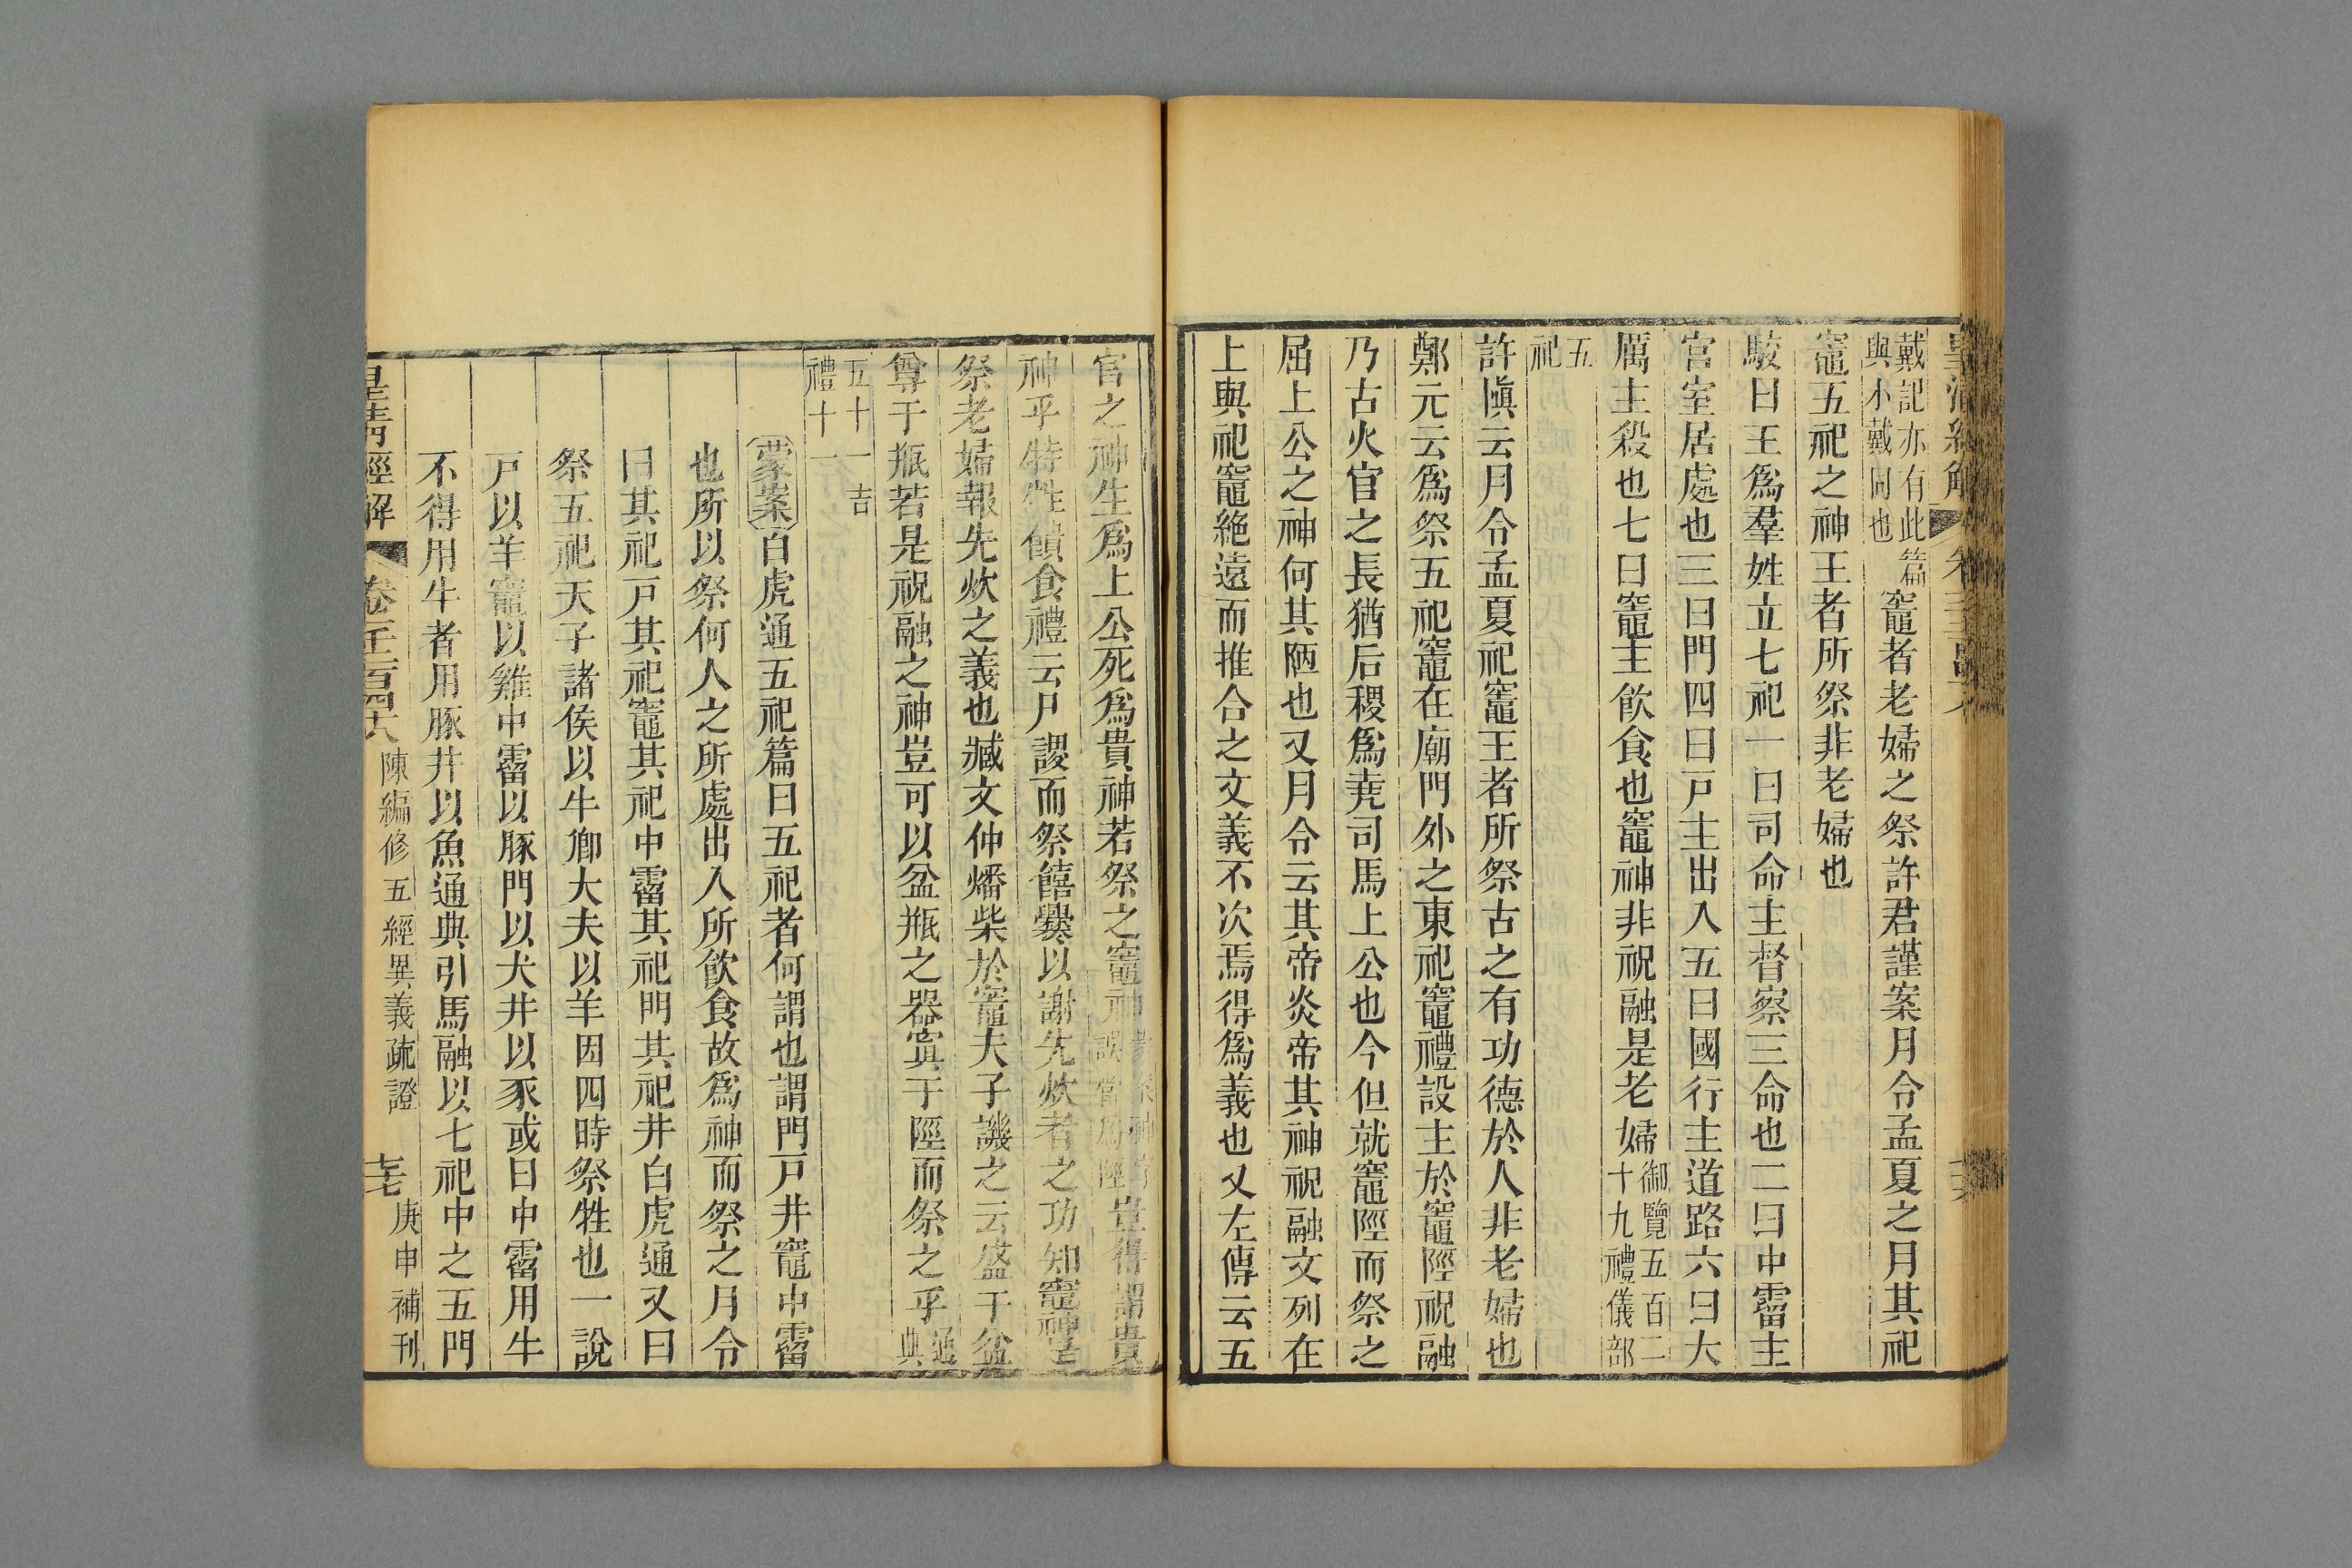 戴記亦有此篇
與小戴同也
竈者老婦之祭許君謹案月令孟夏之月其祀
竈五祀之神王者所祭非老婦也
駮曰王爲羣姓立七祀一曰司命主督察三命也二曰中霤主
宮室居處也三曰門四曰戸主出入五曰國行主道路六曰大
厲主殺也七曰竈主飮食也竈神非祝融是老婦
御覽五百二
十九禮儀部
五
祀
許愼云月令孟夏祀竈王者所祭古之有功德於人非老婦也
鄭元云爲祭五祀竈在廟門外之東祀竈禮設主於竈陘祝融
乃古火官之長猶后稷爲堯司馬上公也今但就竈陘而祭之
屈上公之神何其陋也又月令云其帝炎帝其神祝融文列在
上與祀竈絶遠而推合之文義不次焉得爲義也又左傳云五
官之神生爲上公死爲貴神若祭之竈神
豈得謂貴
神乎特牲饋食禮云尸謖而祭饎爨以謝先炊者之功知竈神是
祭老婦報先炊之義也臧文仲燔柴於竈夫子譏之云盛于盆
尊于瓶若是祝融之神豈可以盆瓶之器寘于陘而祭之乎
通
典
五十一吉
禮十一
蒙案白虎通五祀篇曰五祀者何謂也謂門戸井竈中霤
也所以祭何人之所處出入所飮食故爲神而祭之月令
曰其祀戸其祀竈其祀中霤其祀門其祀井白虎通又曰
祭五祀天子諸侯以牛卿大夫以羊因四時祭牲也一說
戸以羊竈以雞中霤以豚門以犬井以豕或曰中霤用牛
不得用牛者用豚井以魚通典引馬融以七祀中之五門
皇淸經解
卷千二百四十八
陳編修五經異義疏證
庚申補刊